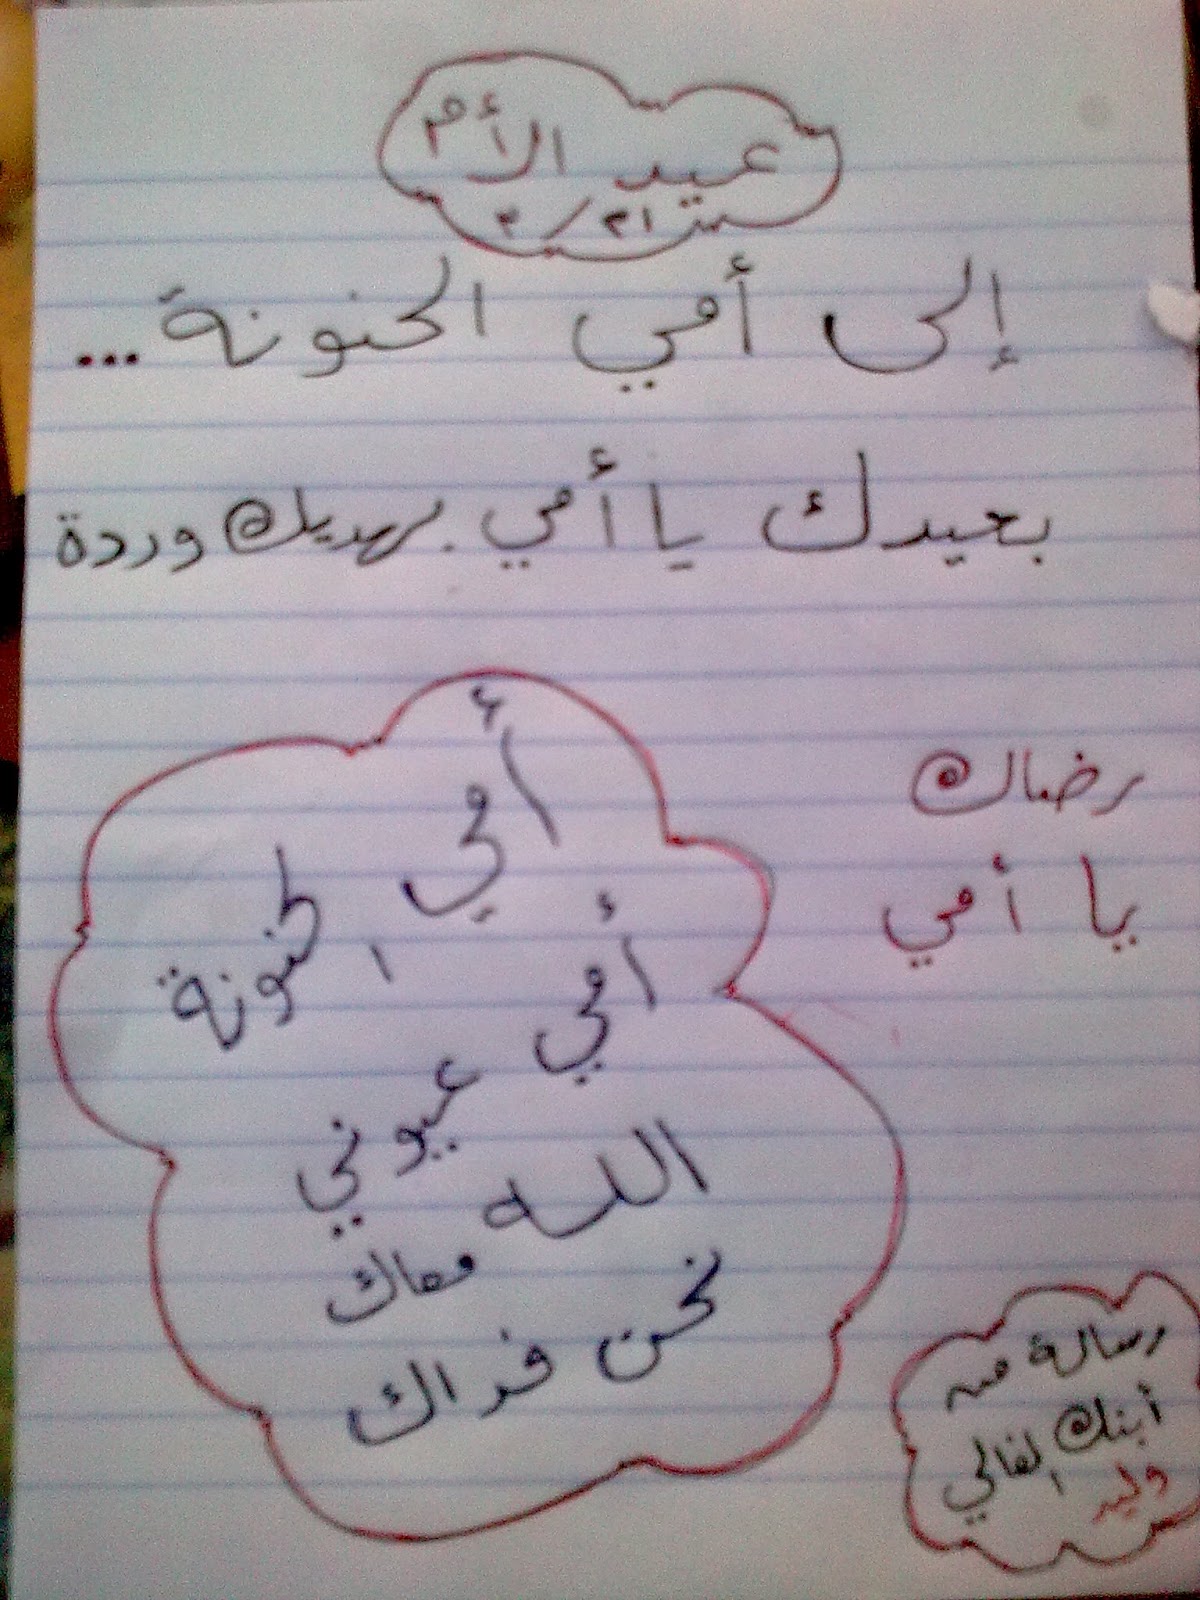 عيد الأم
٢١/٣
إلى أمي الحنونة...
بعيدك يا أمي بهديك وردة
رضاك
يا أمي
أمي
الحنونة
أمي
عيوني
الله
معاك
نحن فداك
رسالة من
أبنك الغالي
وليد